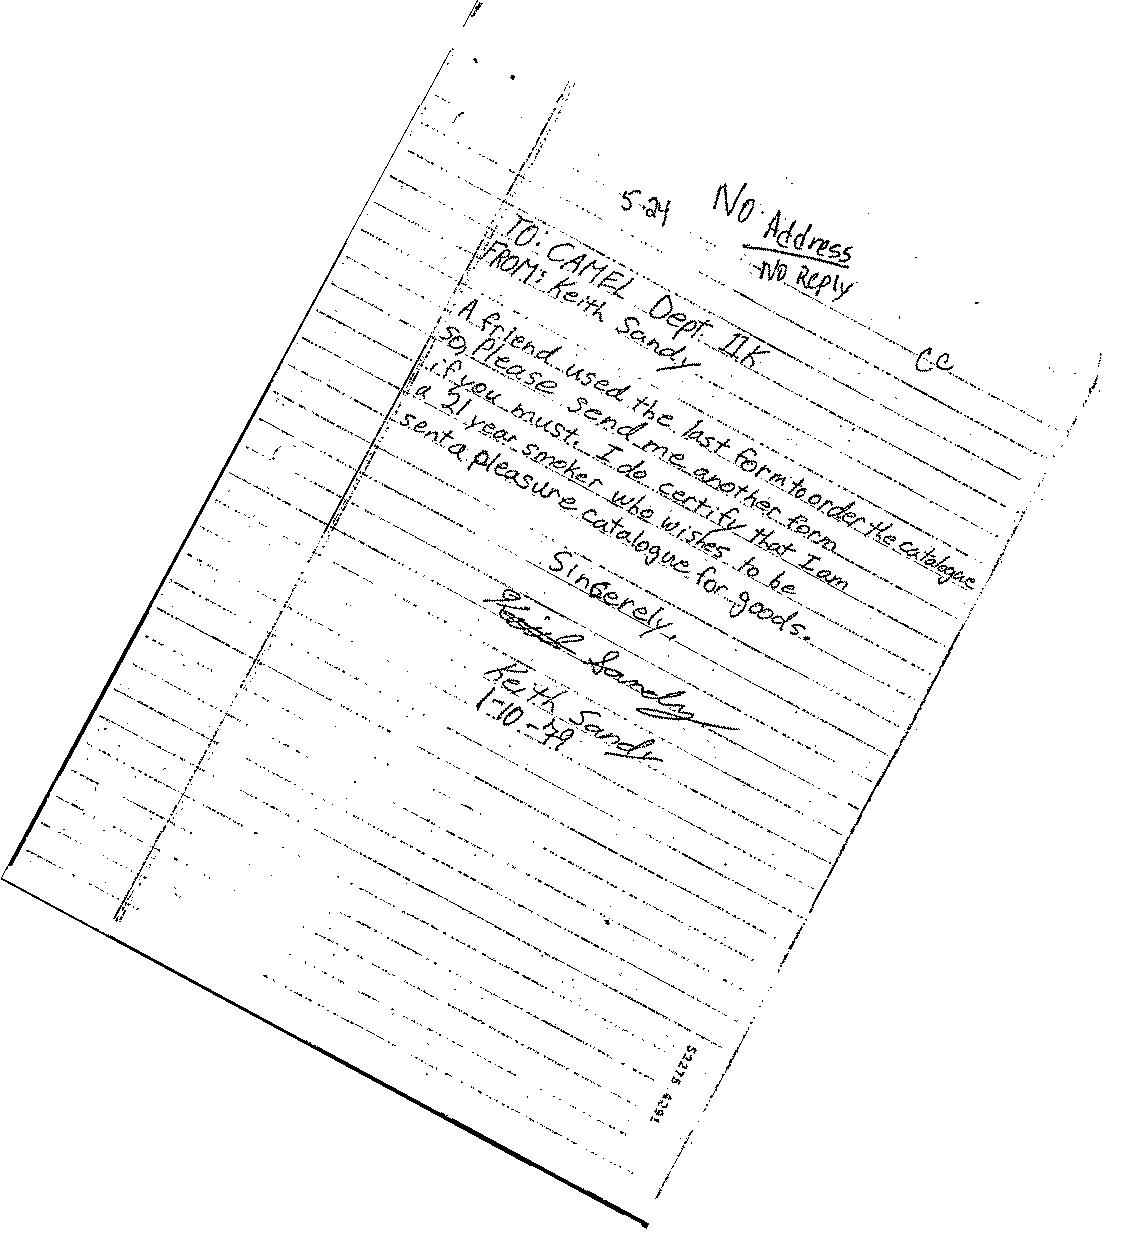 5-24
No Address
No Reply
CC
TO: CAMEL Dept. IIK
FROM: Keith Sandy
A friend used the last form to order the catalogue
so, please send me another form
if you must. I do certify that I am
a 21 year smoker who wishes to be
sent a pleasure catalogue for goods.
Sincerely,
Keith Sandy
Keith Sandy
1-10-79
52275 4291